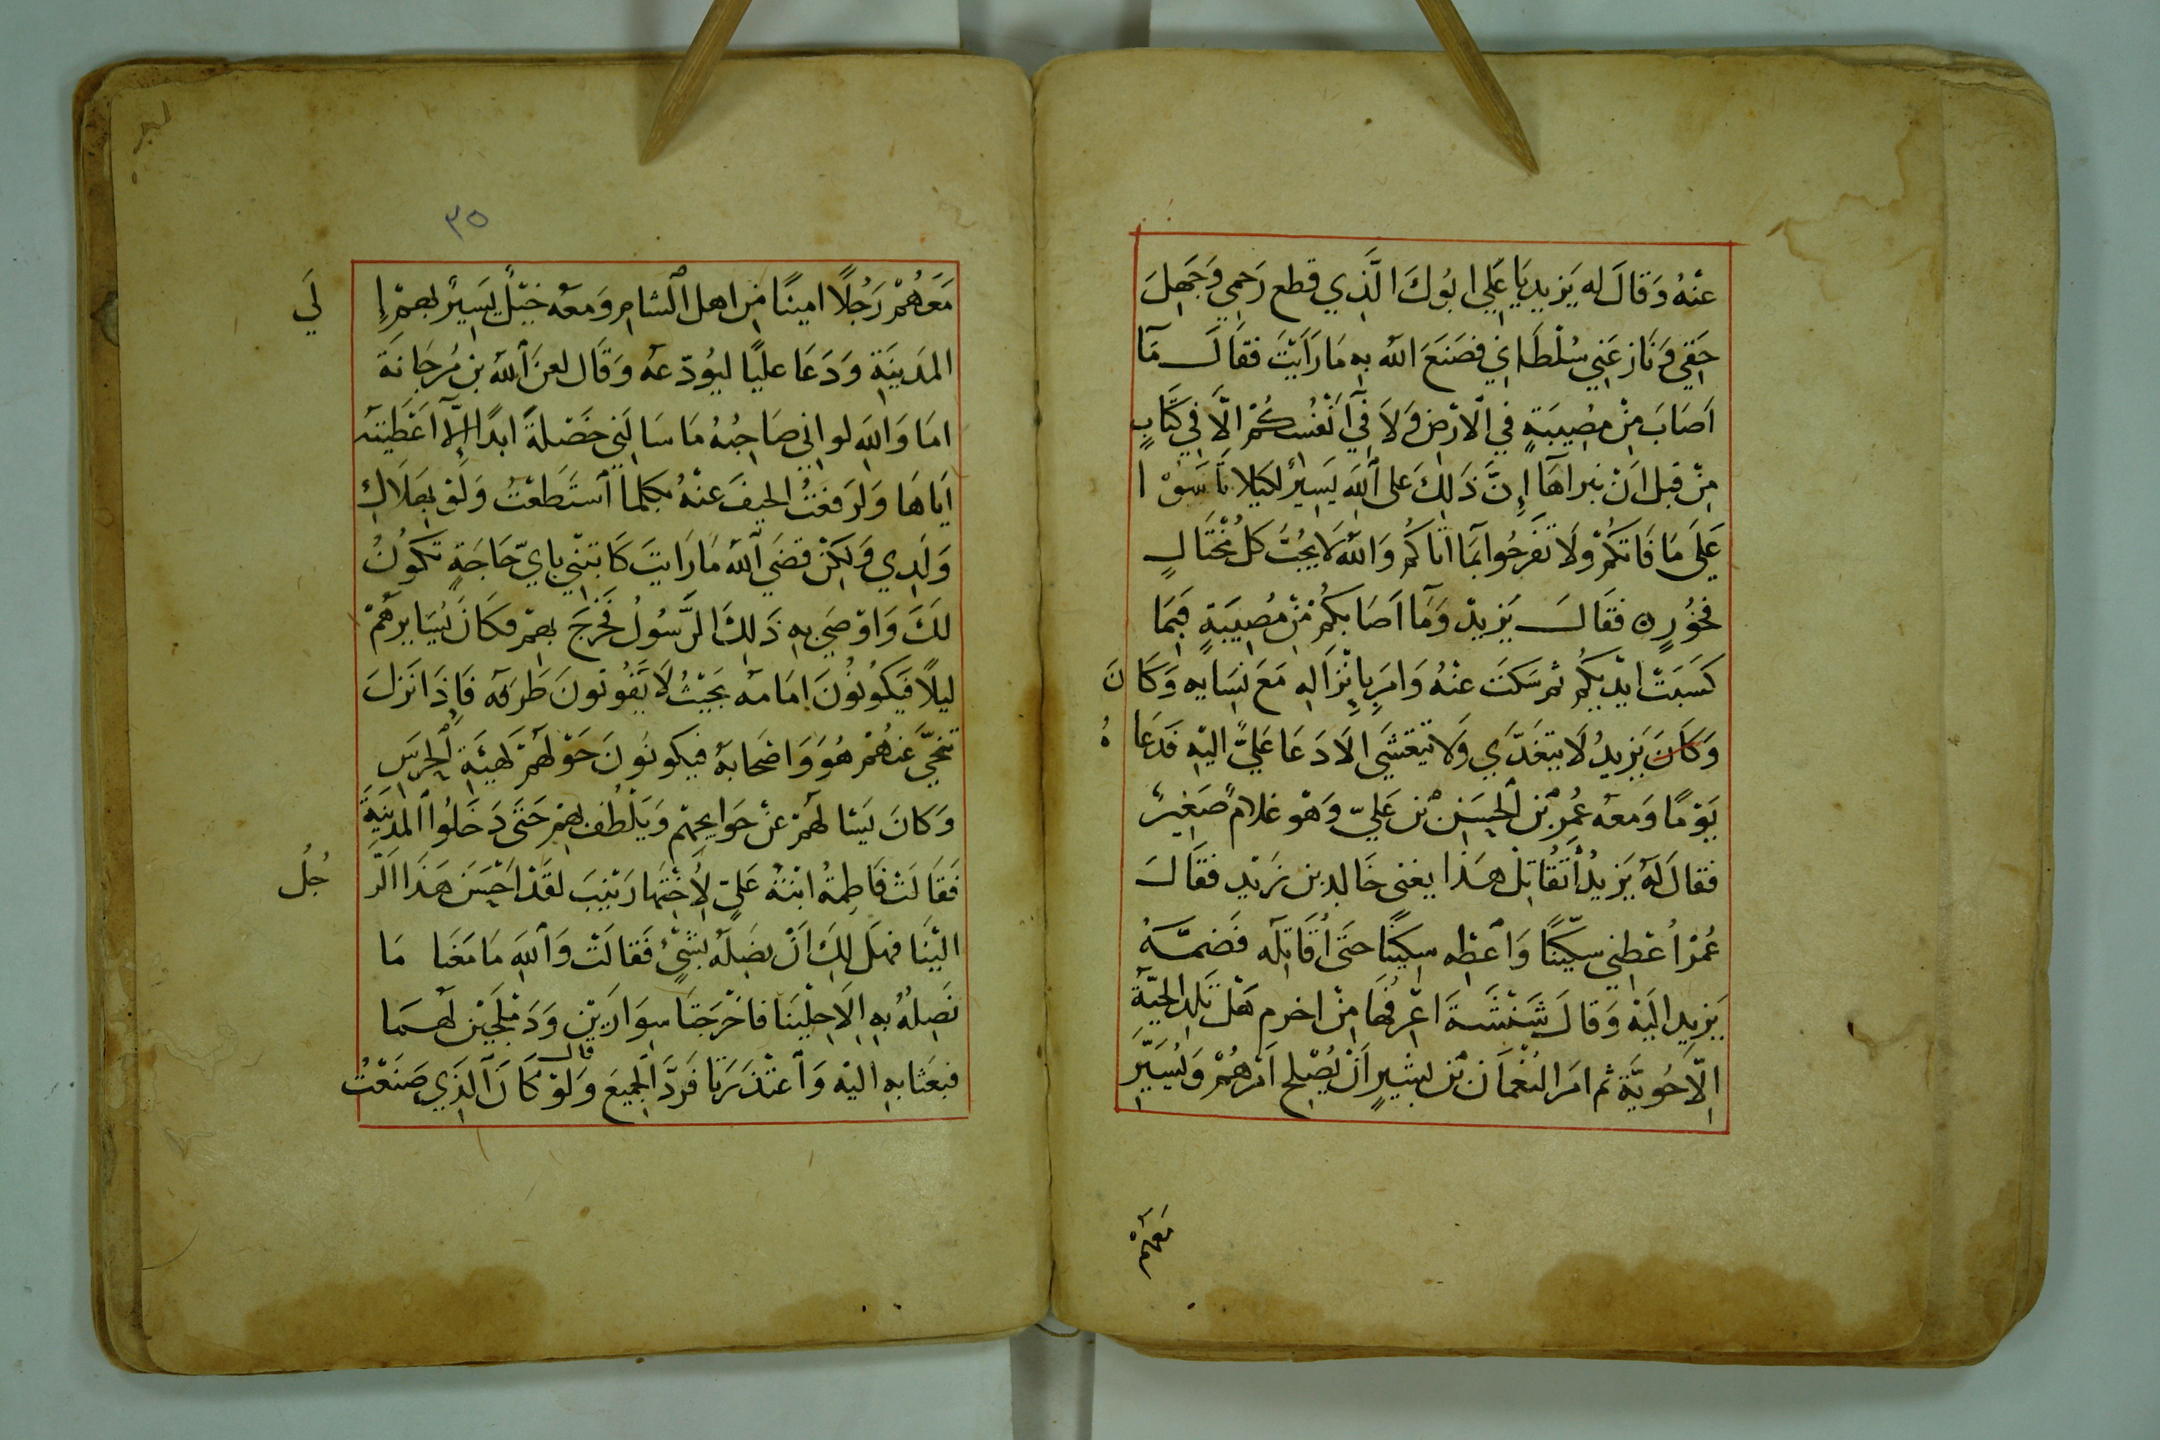 عَنْهُ وَقَالَ له يَزيد يَا عَلِي ابُوكَ الَّذِي قطع رَحمِي وَجَهِلَ
حَقِي وَنَازعَنِي سُلْطَانِي فصَنَعَ الله بِهِ مَا رَايَتَ فقَالَ مَآ
اَصَابَ مِنْ مصِيبَةٍ فِي الارْضِ وَلَا فِيٓ اَنْفُسِكُمْ الَّا فِي كتَابٍ
مِنْ قبل اَنْ نبراهَآ اِنَّ ذَلِكَ عَلى اللهِ يَسِيرٌ لكيلا تَاسَوْا
عَلَى مَا فَاتَكُمْ ولَا تَفْرحُوا بَمَا اتَاكُم وَاللهُ لَا يُحِبُّ كل مُخْتَالٍ
فَخُوْرٍ ه فقَالَ يَزيدْ وَمَآ اَصَابكُمْ مِنْ مُصِيَبَةٍ فَبِمَا
كَسَبَتْ ايْديكُم ثم سَكتَ عنْهُ وَامَر بِانْزَالهِ مَعَ نِسَايهِ وَكَانَ
وَكَانَ يَزيدُ لَا يتغَدَّي وَلَا يتعَشَي الا دَعَا عَليَّ اليْهِ فدَعَاهُ
يَوْمًا وَمَعَه عُمرُ بْن الحُسَيْن بْن عَليّ وَهْو غلامٌ صَغِيرٌ
فقَالَ لَهُ يَزيدُ أَتُقَاتِلْ هَذا يعَني خَالِد بن يَزيد فقَالَ
عُمْرُ اُعْطِني سِكّينًا وَاعْطِه سِكّينًا حتَى اُقَاتِلَه فَضمَّهُ
يَزيد اليْه وَقالَ شَنْشَنَةَ اعْرفُهَا مِنْ اخرم هَلْ تَلِد الحيَّةَ
اِلّا حُوَيَّة ثم امَر النُعْمَان بْن بشيرٍ اَنْ يُصْلح اَمْرهُمْ وَيُسَيِّر
مَعَهُمْ
٣٥
مَعَهُمْ رَجُلًا امينًا مِن اهل الشام وَمعَه خَيْلٌ يَسِيرُ بهمْ اِلَي
المَدينَةِ وَدَعَا عليًا ليُودّعَه وَقَال لعَنَ اللهُ بن مُرجَانَة
امَا وَاللهِ لو اني صَاحِبُهُ مَا سَالَنِي خَصْلةً ابدًا اِلَّآ اَعْطَيتُه
اَيّاهَا وَلرَفعْتُ الحيفَ عنْهُ بكلمَا اسْتَطَعْتُ وَلَوْ بِهَلَاكِ
وَلَدِي وَلكِنْ قضَي اللهُ مَا رَايتَ كَاتبْني بايّ حَاجَةٍ تَكُونُ
لَكَ وَاوْصَي بهِ ذَلِكَ الرَّسُولُ فَخَرجَ بهمْ فكَانَ يُسَايرهُمْ
ليلًا فَيَكُونُونَ امَامه بَحَيْثُ لَا يَفُوتونَ طَرفه فَاِذَا نَزلَ
تنَحَّي عَنْهُمْ هُوَ وَاصْحَابهُ فيكونُونَ حَوْلهمْ كَهَيْئَةِ الحَرسِ
وَكَانَ يَسْالهُمْ عنْ حَوَايجهِمْ وَيَلْطُف بِهِمْ حَتَى دَخَلُوا المَدينَة
فَقَالَتْ فَاطِمةُ ابْنَةُ عَليٍّ لِأُخْتِهَا زَيْنَبَ لقَدْ احْسَن هَذَا الرَّجُل
اليْنَا فهَل لكِ اَنْ نصِلَهُ بشَيْءٍ فَقالَتْ وَاللهِ مَا مَعَنا مَا
نَصِلُهُ بهِ الا حِليْنَا فاخْرَجَتَا سِوَاريْن وَدمْلجَيْن لَهمَا
فبعَثَا بهِ اليْهِ وَاعْتَذَرتَا فَرَدَّ الجَميعَ وَقال لَوْ كَانَ الذِي صَنَعْتُ